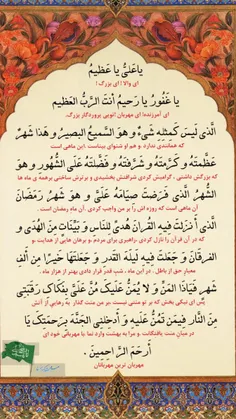 یا عَلیُّ یا عَظیمُ
ای والا؛ ای بزرگ؛
یا غَفُورُ یا رَحیمُ اَنْتَ الرَّبُّ الْعَظیم
ای آمرزنده؛ ای مهربان؛ تویی پروردگار بزرگ.
الَّذی لَیْسَ کَمِثْلِهِ شَیْءٌ وَ هُوَ السَّمیعُ الْبَصیرُ وَ هذا شَهْرٌ
که همانندی ندارد و هم او شنوای بیناست. این ماهی است
عَظَّمْتَهُ وَ کَرَّمْتَهُ وَ شَرَّفْتَهُ وَ فَضَّلْتَهُ عَلَی الشُّهُورِ وَ هُوَ
که بزرگش داشتی، گرامیش کردی شرافتش بخشیدی و برترش ساختی برهمه ی ماه ها
الشَّهْرُ الَّذی فَرَضْتَ صِیامَهُ عَلَیَّ وَ هُوَ شَهْرُ رَمَضانَ
آن ماهی است که روزه اش را بر من واجب کردی. آن ماه رمضان است.
الَّذی اَنْزَلْتَ فیهِ الْقُرْآنَ هُدیً لِلنّاسِ وَ بَیِّناتٍ مِنَ الْهُدی وَ
که در آن قرآن را نازل کردی. راهبری برای مردم و برهان هایی از هدایت و
الْفُرْقانَ وَ جَعَلْتَ فیهِ لَیْلَةَ الْقَدْرِ وَ جَعَلْتَها خَیْراً مِنْ اَلْفِ
معیار حق از باطل. در آن ماه، شب قدر قرار دادی بهتر از هزار ماه.
شَهْرٍ فَیا ذَا الْمَنِّ وَ لا یُمَنُّ عَلَیْکَ مُنَّ عَلَیَّ بِفَکاکِ رَقَبَتی
پس ای نیکی بخش که بر تو منتی نیست، بر من منت گذار به رهایی از آتش
مِنَ النّارِ فیمَنْ تَمُنُّ عَلَیْهِ وَ اَدْخِلْنِی الْجَنَّةَ بِرَحْمَتِکَ یا
اَرْحَمَ الرّاحِمینَ.
مهربان ترین مهربانان